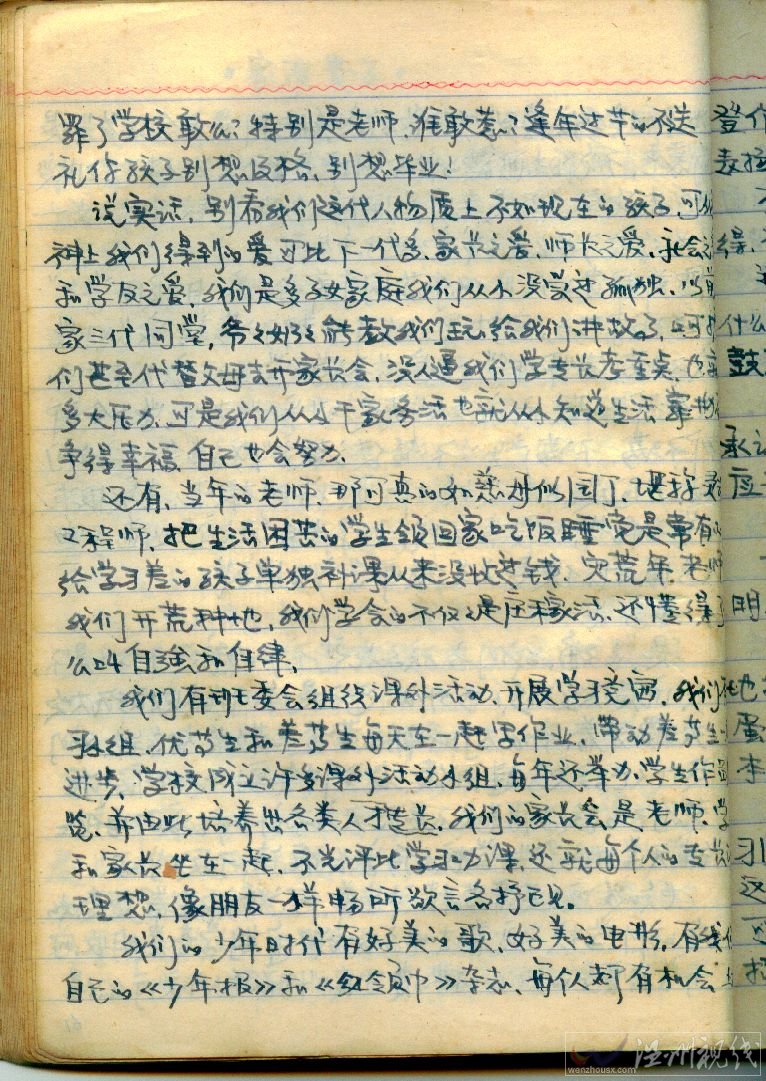 罪了学校敢么？特别是老师、谁敢惹？逢年过节的不送
礼你孩子别想及格、别想毕业！
说实话，别看我们这代人物质上不如现在的孩子，可
神上我们得到的爱可比下一代多、家长之爱、师长之爱、社会之
和学友之爱，我们是多子女家庭我们从小没尝过孤独、以前
家三代同堂，爷爷奶奶能教我们玩给我们讲故事、
们甚至代替父母去开家长会，没人逼我们学专长考重点，也
多大压力、可是我们从小干家务活也就从小知道生活
争得幸福、自己也会努力。
还有、当年的老师、那可真的如慈母似园丁、堪称
工程师、把生活困苦的学生领回家吃饭睡觉是常有
给学习差的孩子单独补课从来没收过钱、灾荒年、老师
我们开荒种地，我们学会的不仅仅是庄稼活、还懂得了
么叫自强和自律、
我们有班委会组织课外活动、开展学习竞赛，我们
习小组、优等生和差等生每天在一起写作业、带动差等生
进步，学校成立许多课外活动小组、每年还举办学生作
览、并由此培养出各类人才专长，我们的家长会是老师、学
和家长坐在一起、不光评比学习功课、还就每个人的专长
理想、像朋友一样畅所欲言各抒己见。
我们的少年时代有好美的歌、好美的电影，有我们
自己的《少年报》和《红领巾》杂志、每个人都有机会
登
什么
鼓
承
应
明
也
蛋
李
引
这
可
招
温州视线
wenzhousx.com